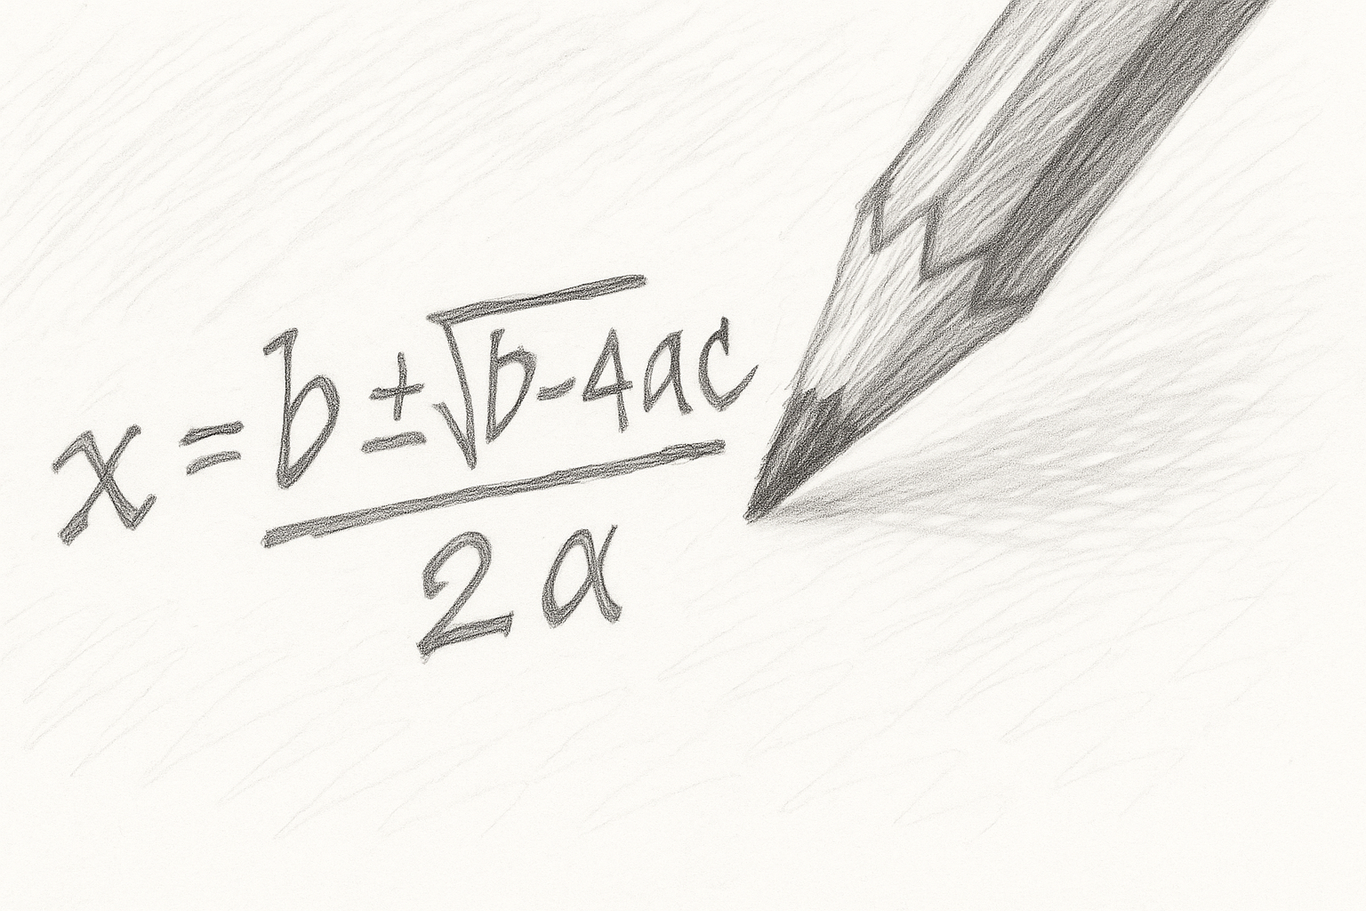 x = b ± √b-4ac
2a